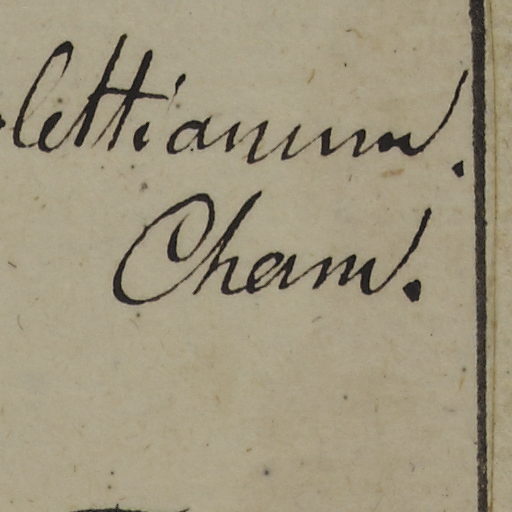 lettianum.
Cham.